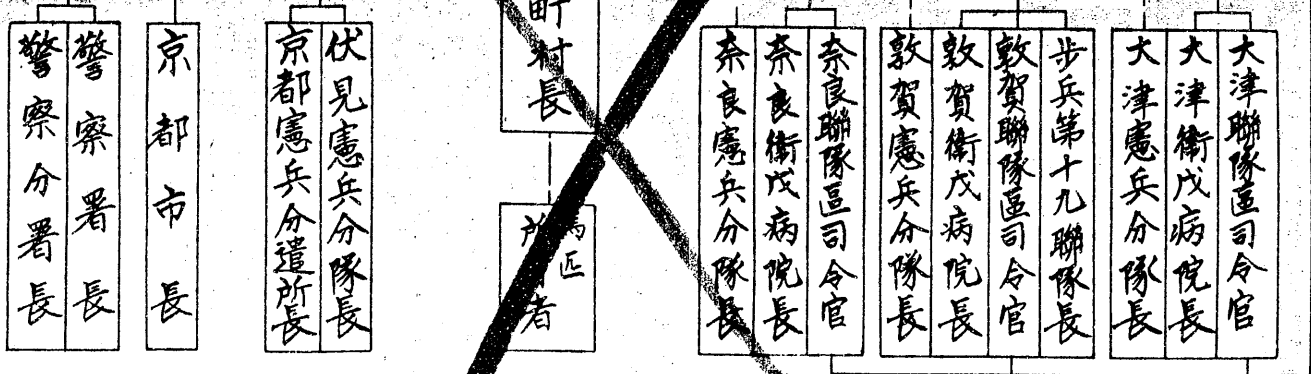 大津聯隊區司令官
大津衛戍病院長
大津憲兵分隊長
步兵第十九聯隊長
敦賀聯隊區司令官
敦賀衛戍病院長
敦賀憲兵分隊長
奈良聯隊區司令官
奈良衛戍病院長
奈良憲兵分隊長
町村長
馬匹
所 者
伏見憲兵分隊長
京都憲兵分遣所長
京都市長
警察署長
警察分署長